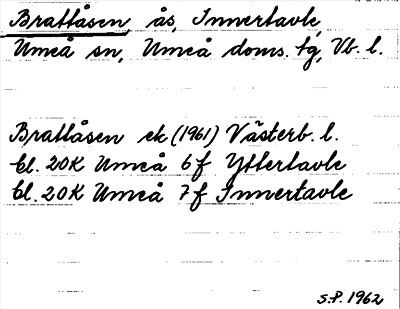 Brattåsen, ås, Innertavle,
Umeå sn, Umeå doms. tg, Vb. l.
Brattåsen ek (1961) Västerb. l.
bl. 20K Umeå 6f Yttertavle
bl. 20K Umeå 7f Innertavle
S.P. 1962